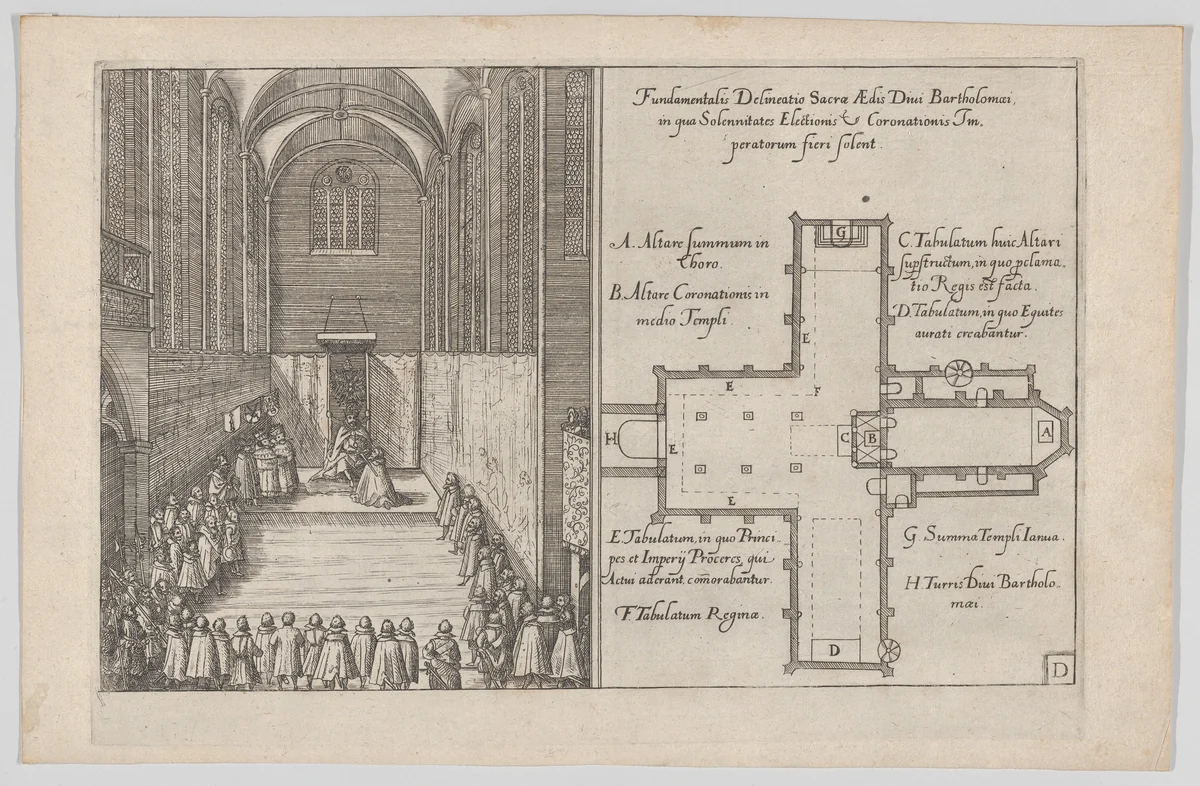 Fundamentalis Delineatio Sacræ Ædis Diui Bartholomæi,
in qua Solennitates Electionis & Coronationis Im-
peratorum fieri solent.
A. Altare summum in
Choro.
B. Altare Coronationis in
medio Templi.
C. Tabulatum huic Altari
supstructum, in quo pclama-
tio Regis est facta.
D. Tabulatum, in quo Equites
aurati creabantur.
G
E
E
F
H
E
C
B
A
E
D
E Tabulatum, in quo Princi-
pes et Imperij Proceres, qui
Actui aderant, com̄orabantur.
F. Tabulatum Reginæ.
G. Summa Templi Ianua.
H Turris Diui Bartholo-
mæi.
D